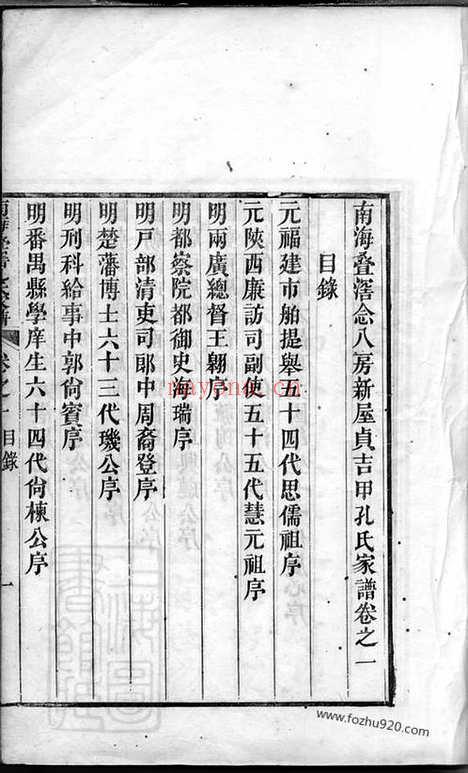 南海叠滘念八房新屋貞吉甲孔氏家譜卷之一
目錄
元福建市舶提舉五十四代思儒祖序
元陝西廉訪司副使五十五代慧元祖序
明兩廣總督王翱序
明都察院都御史海瑞序
明戸部清吏司郎中周裔登序
明楚藩博士六十三代璣公序
明刑科給事中郭尙賓序
明番禺縣學庠生六十四代尙棟公序
卷之一
目錄
一
www.fozhu920.com